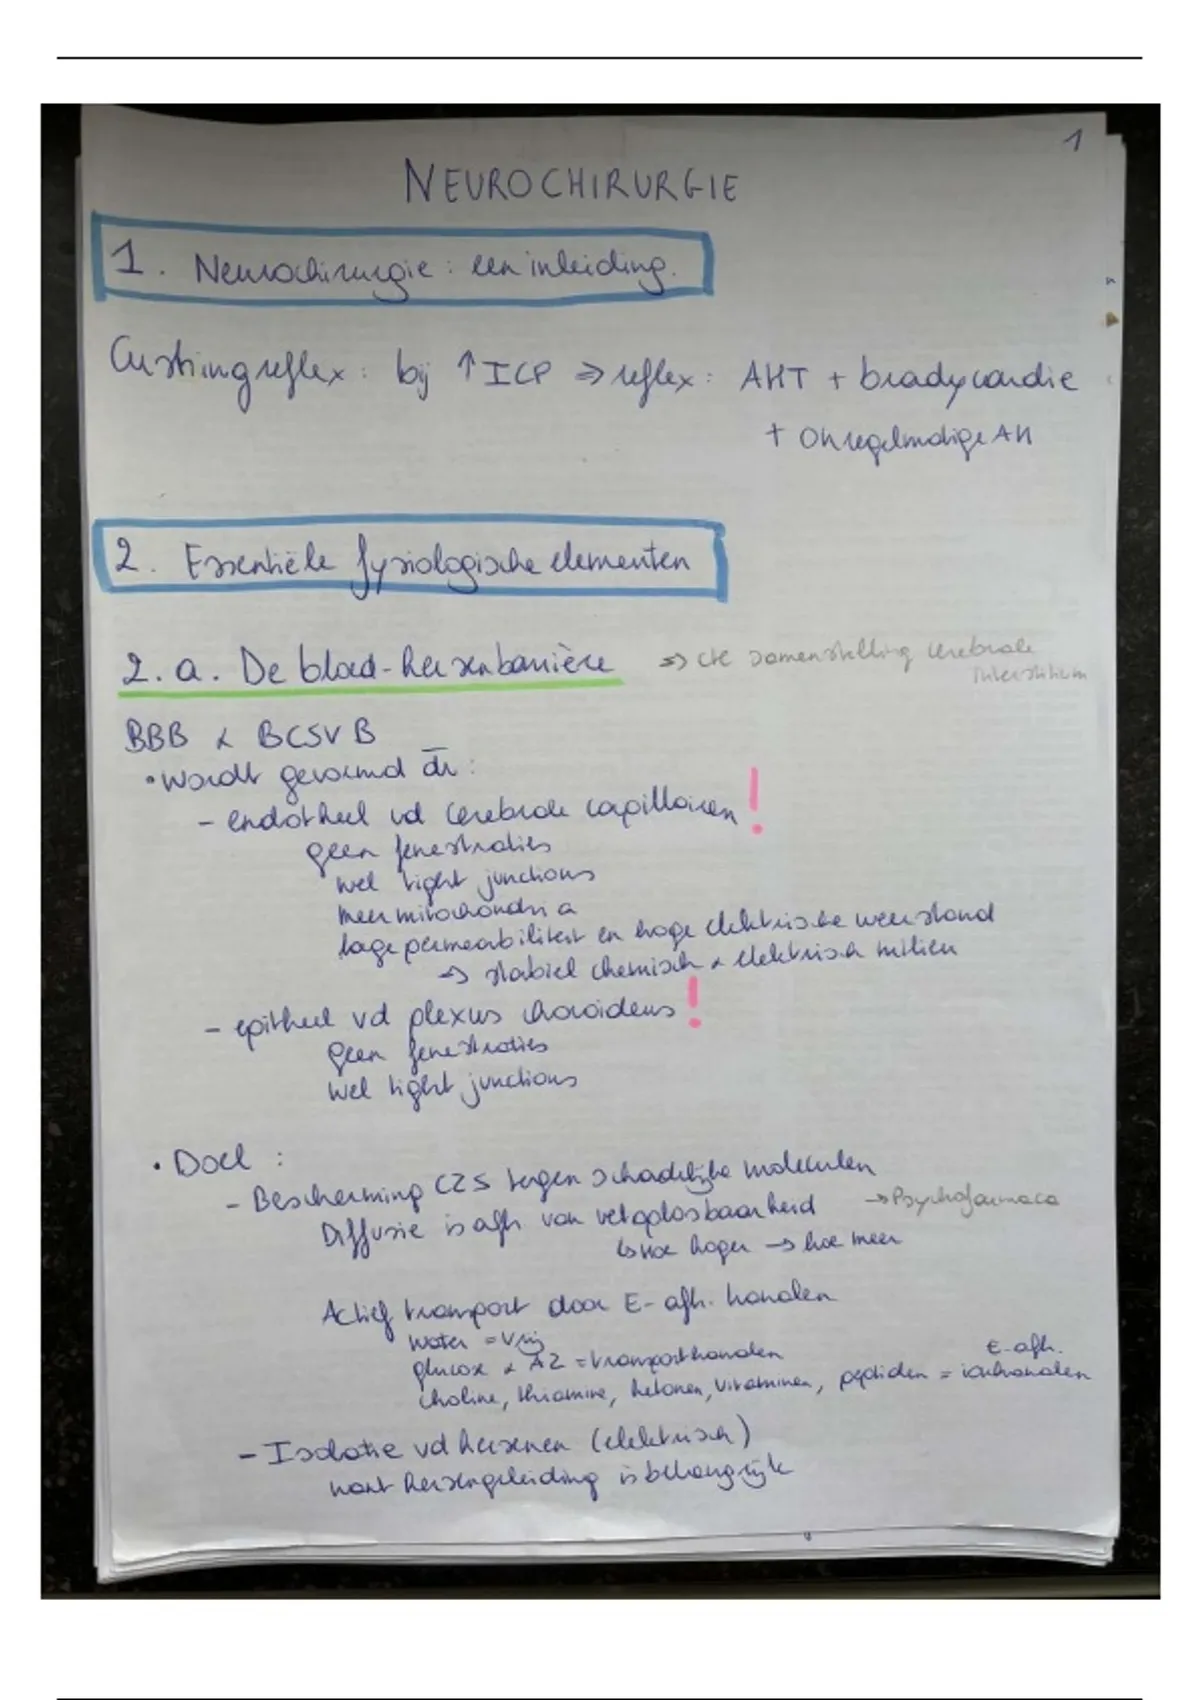 1
NEUROCHIRURGIE
1. Neurochirurgie: een inleiding.
Cushingreflex: bij ↑ICP => reflex: AHT + bradycardie
+ Onregelmatige AH
2. Essentiële fysiologische elementen
2.a. De bloed-hersenbarrière => cte samenstelling cerebrale
interstitium
BBB & BCSVB
• Wordt gevormd dr:
- endotheel vd cerebrale capillairen !
geen fenestraties
wel tight junctions
meer mitochondria
lage permeabiliteit en hoge elektrische weerstand
-> stabiel chemisch & elektrisch milieu
- epitheel vd plexus choroideus !
geen fenestraties
wel tight junctions
• Doel :
- Bescherming CZS tegen schadelijke moleculen
Diffusie is afh van vetoplosbaarheid -> Psychofarmaca
↳ Hoe hoger -> hoe meer
Actief transport door E-afh. kanalen
Water = vrij
glucose & AZ = transportkanalen E-afh.
choline, thiamine, ketonen, vitaminen, peptiden = ionkanalen
- Isolatie vd hersenen (elektrisch)
want hersengeleiding is belangrijk